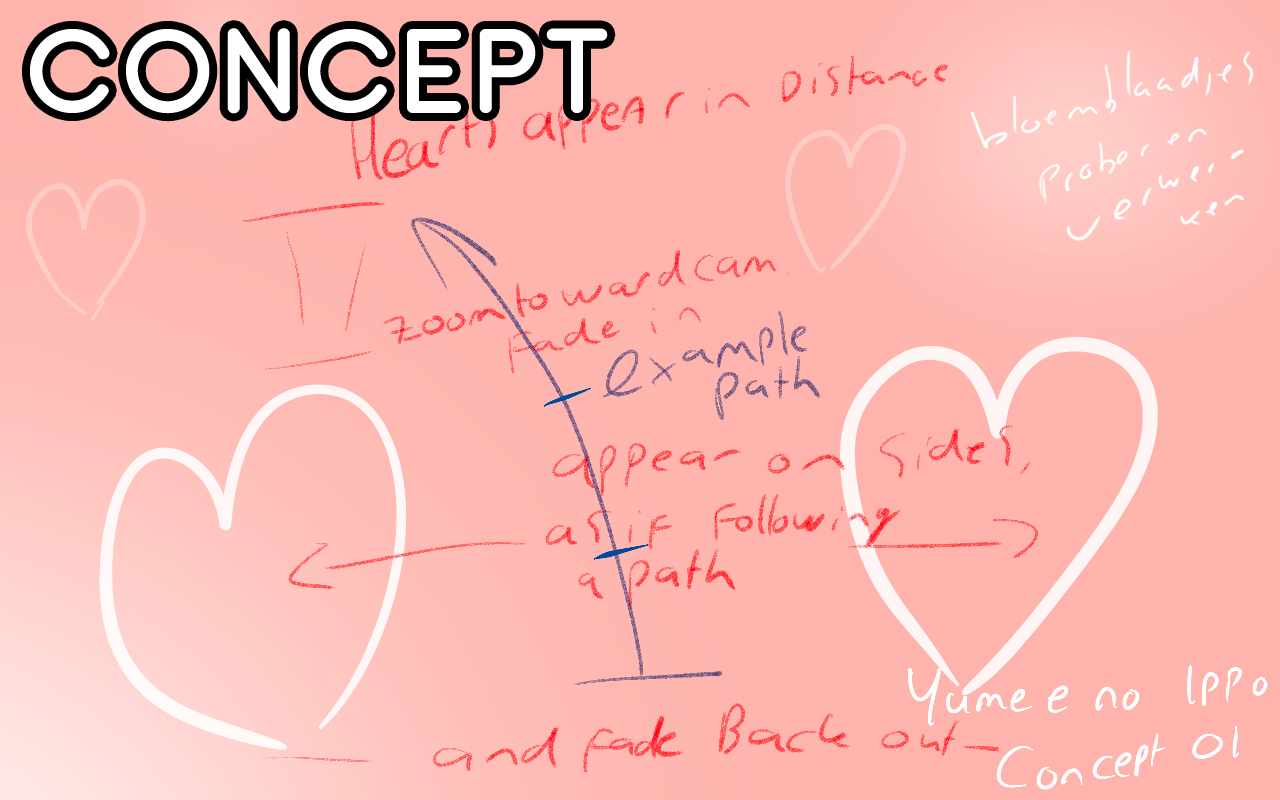 CONCEPT
Hearts appear in Distance
bloemblaadjes
proberen
verwer-
ken
zoom toward cam
Fade in
example
path
appear on sides,
as if Following
a path
and fade Back out
Yume e no Ippo
Concept 01